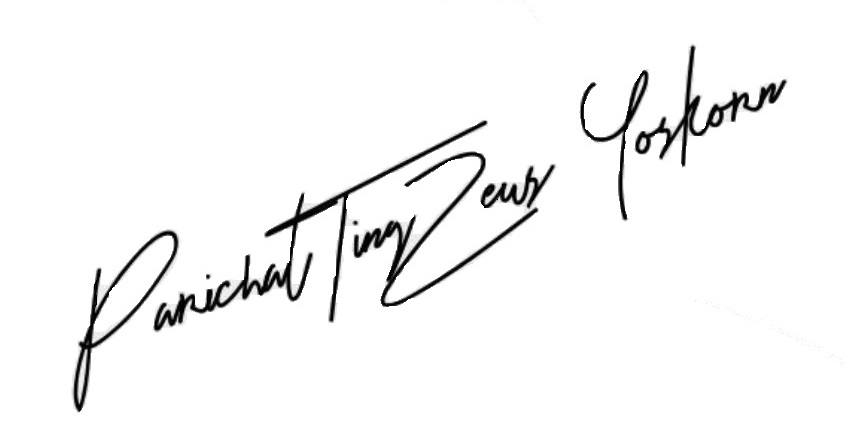 Panichat Ting Zeus Yoskorn